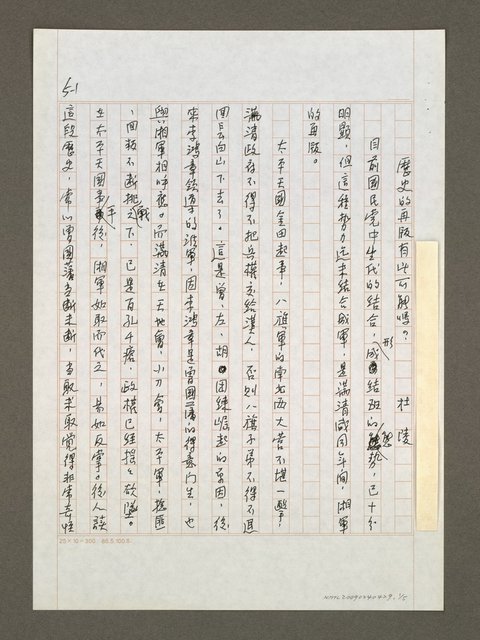 歷史的再版有此可能嗎？ 杜陵
目前國民黨中生代的結合，形成結班的態勢，已十分
明顯，但這種勢力迄未結合成軍，是滿清咸同年間，湘軍
的再版。
太平天國金田起事，八旗軍的東北西大營不堪一擊，
滿清政府不得不把兵權交給漢人，否則八旗子弟不得不退
回長白山下去了。這是曾、左、胡團練崛起的原因，後
來李鴻章統率的淮軍，因李鴻章是曾國藩的得意門生，也
與湘軍相呼應。而滿清在天地會，小刀會，太平軍，捻匪
、回叛不斷挑戰之下，已是百孔千瘡，政權已經搖搖欲墜。
在太平天國事平後，湘軍如取而代之，易如反掌。後人讀
這段歷史，常以曾國藩當斷未斷，當取未取覺得非常奇怪
5-1
25×10=300 86.5.100本
NMTL20090240429. 1/5